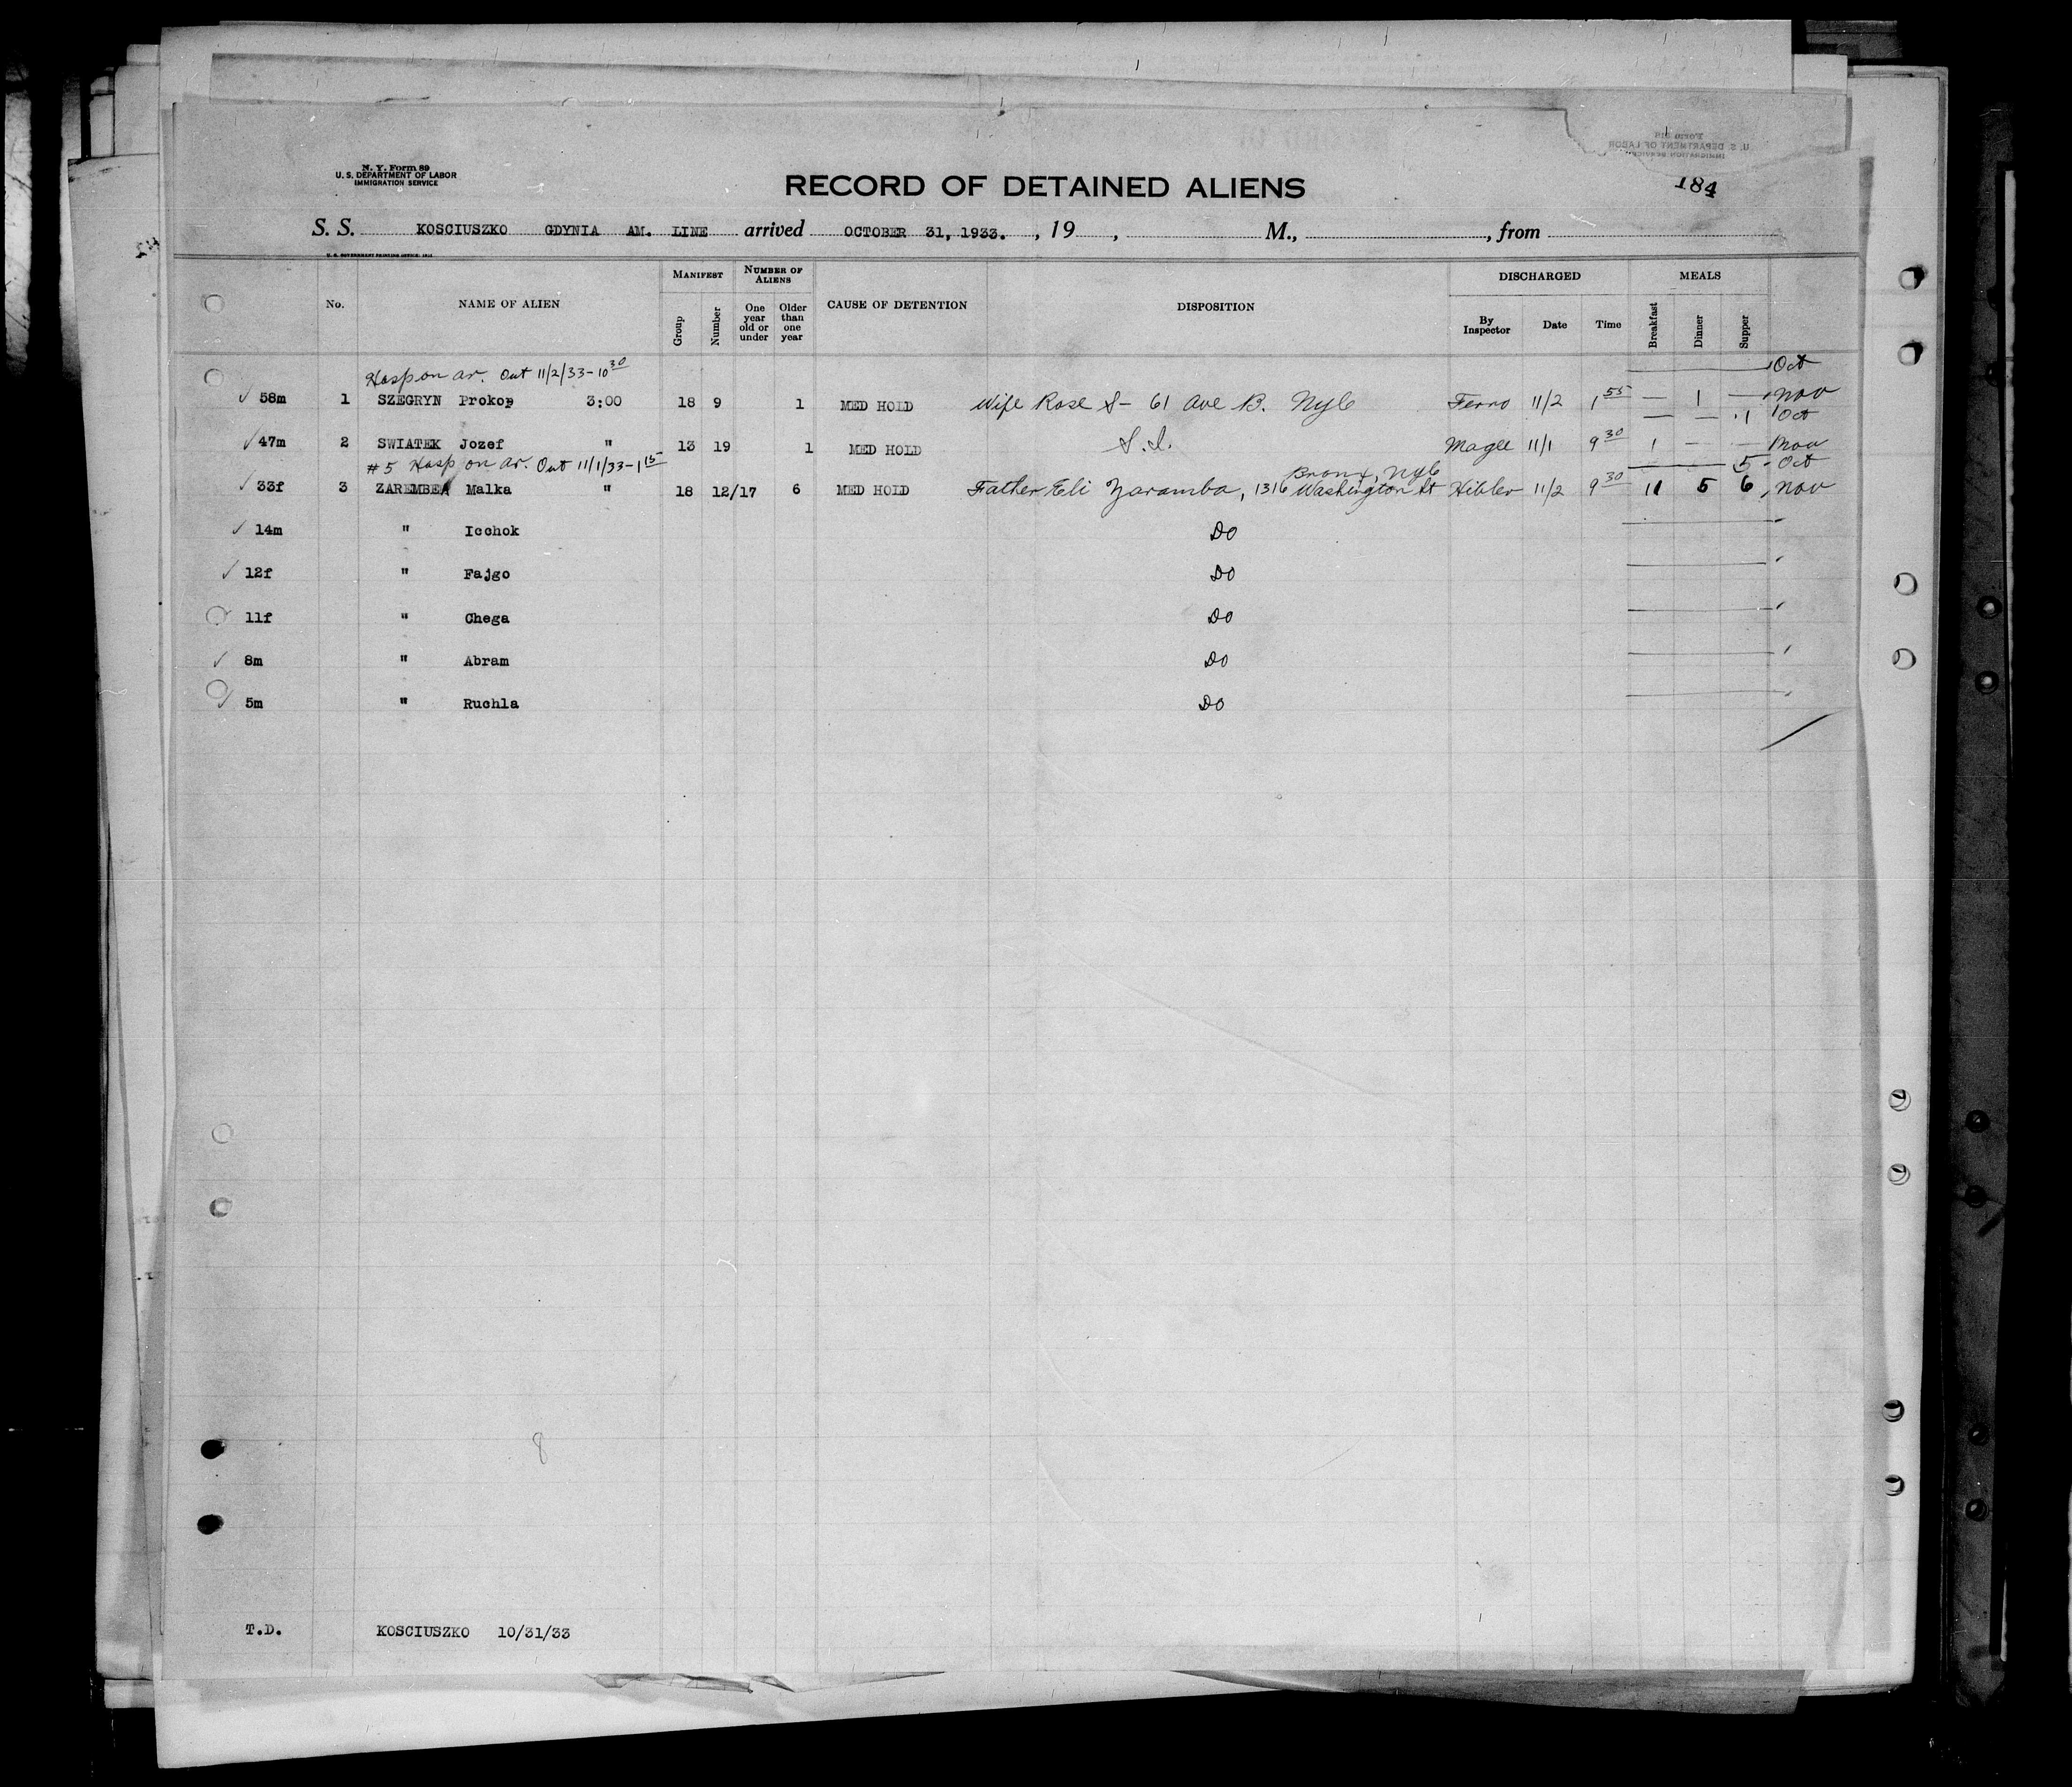 N. Y. Form 89
U. S. DEPARTMENT OF LABOR
IMMIGRATION SERVICE
Form
U. S. DEPARTMENT OF LABOR
IMMIGRATION SERVICE
184
RECORD OF DETAINED ALIENS
S. S. KOSCIUSZKO GDYNIA AM. LINE arrived OCTOBER 31, 1933. , 19 , M., , from
U. S. GOVERNMENT PRINTING OFFICE
No. NAME OF ALIEN MANIFEST Group Number NUMBER OF ALIENS One year old or under Older than one year CAUSE OF DETENTION DISPOSITION DISCHARGED By Inspector Date Time MEALS Breakfast Dinner Supper
Hosp on ar. Out 11/2/33-10 30 Oct
58m 1 SZEGRYN Prokop 3:00 18 9 1 MED HOLD Wife Rose S- 61 Ave B. NYC Ferro 11/2 1 55 — 1 — Nov
— — 1 Oct
47m 2 SWIATEK Jozef " 13 19 1 MED HOLD S.I. Magee 11/1 9 30 1 — — Nov
#5 Hosp on ar. Out 11/1/33-1 15 Bronx, NYC 5 Oct
33f 3 ZAREMBEA Malka " 18 12/17 6 MED HOLD Father Eli Zaramba, 1316 Washington St Hibler 11/2 9 30 11 5 6 Nov
14m " Icchok Do
12f " Fajgo Do
11f " Chega Do
8m " Abram Do
5m " Ruchla Do
8
T.D. KOSCIUSZKO 10/31/33